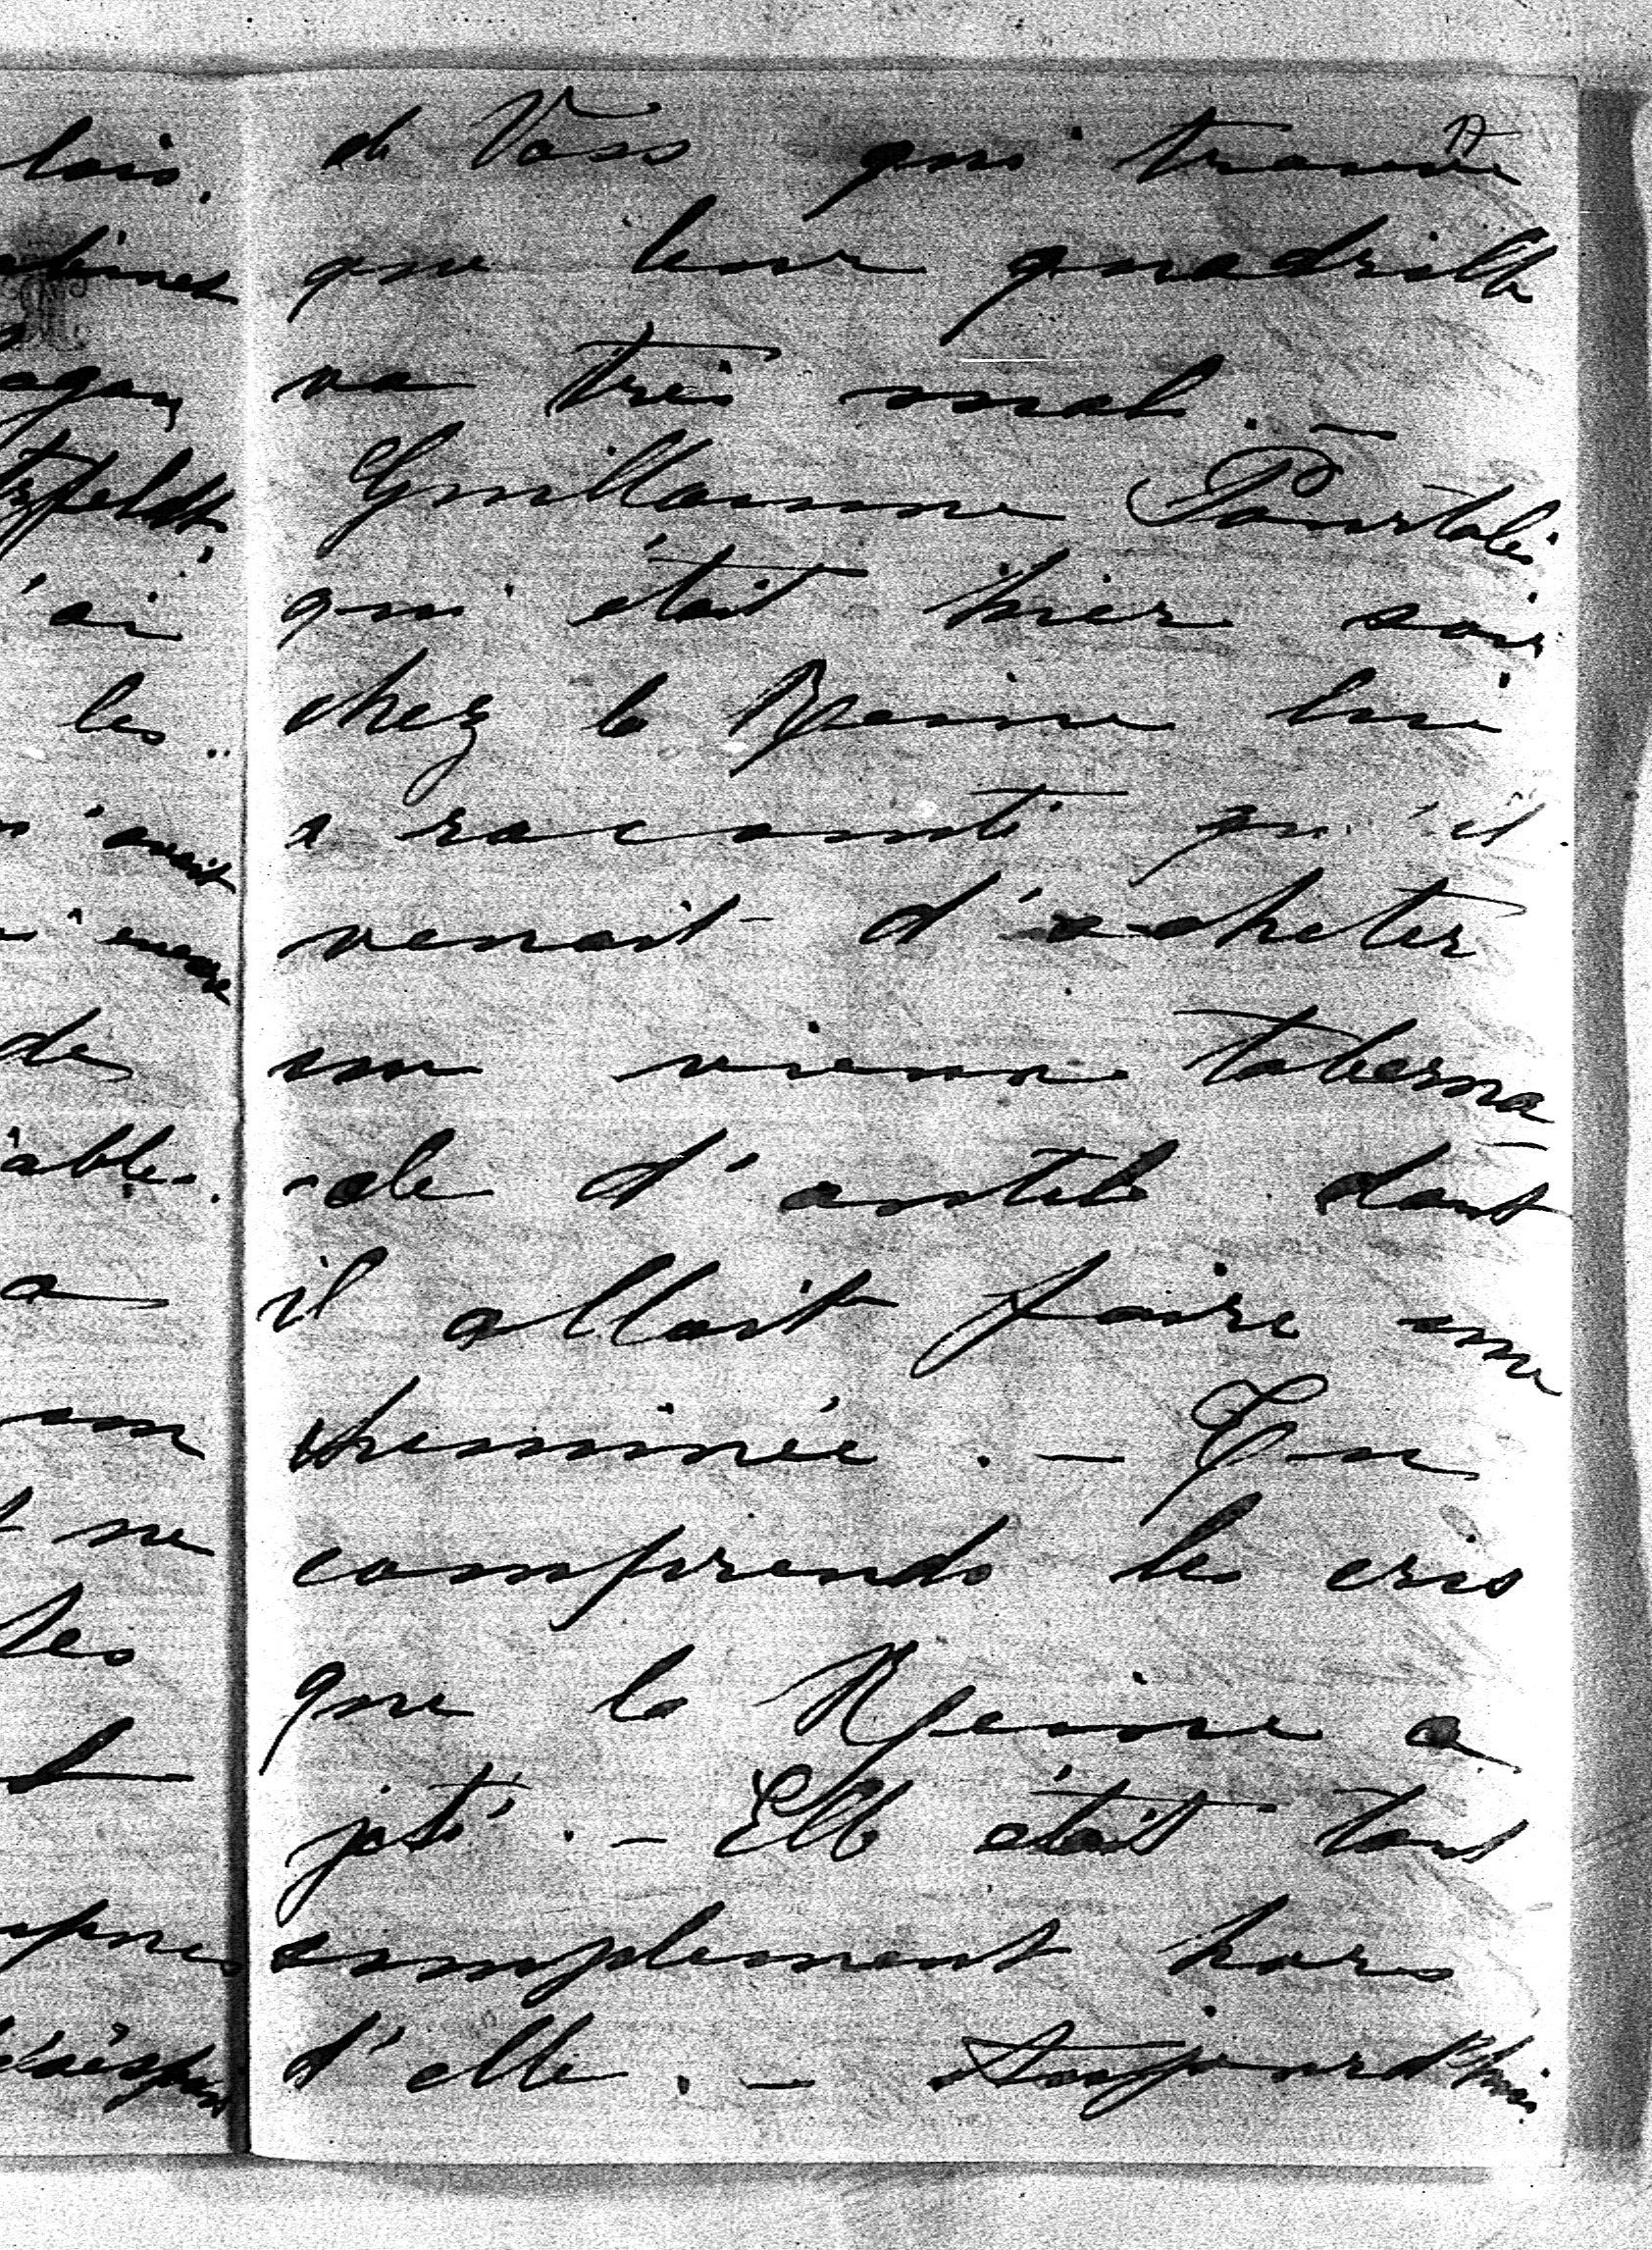 17
de Voss qui trouve
que leur quadrille
va très mal. —
Guillaume Pourtalès
qui était hier soir
chez la Reine lui
a raconté qu'il
venait d'acheter
un vieux taberna
-cle d'autel dont
il allait faire une
cheminée. — Tu
comprends les cris
que la Reine a
jeté. — Elle était tout
simplement hors
d'elle. — Aujourd'hui
lois.
'ai
les
avait
de
a
ne
les